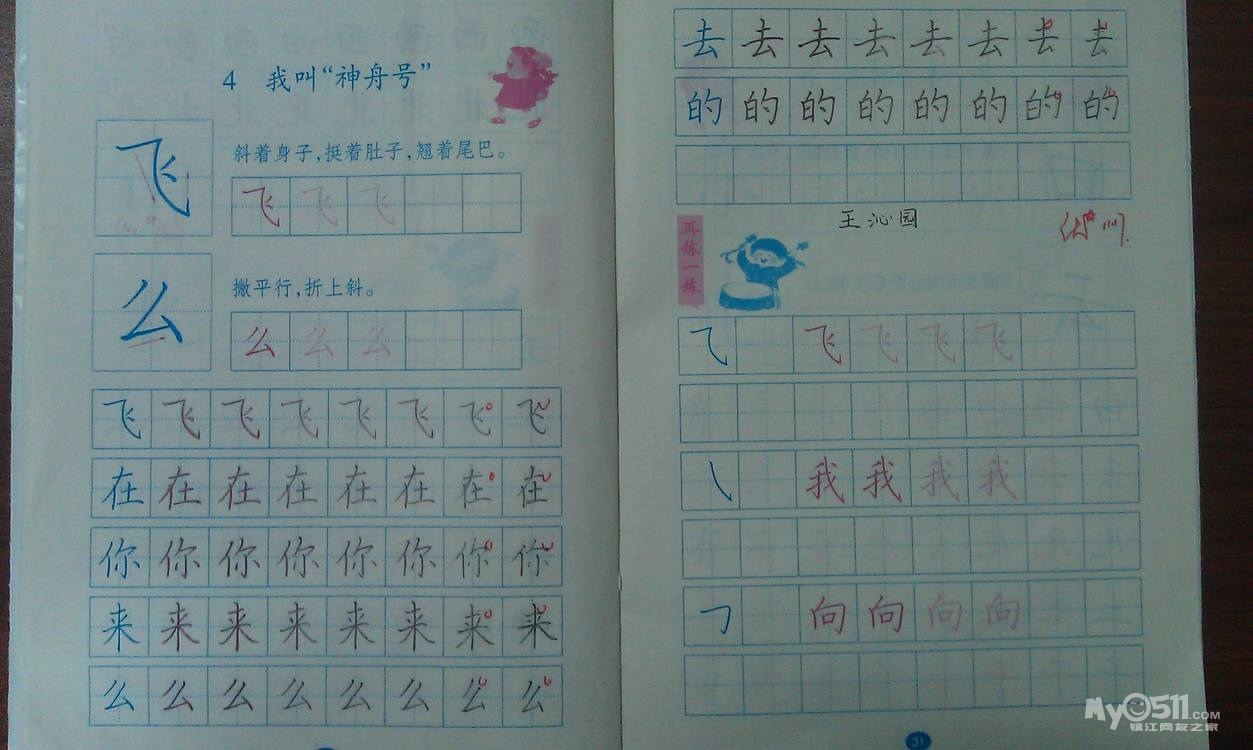 4 我叫“神舟号”
飞
斜着身子，挺着肚子，翘着尾巴。
飞 飞 飞
么
撇平行，折上斜。
么 么 么
飞 飞 飞 飞 飞 飞 飞 飞
在 在 在 在 在 在 在 在
你 你 你 你 你 你 你 你
来 来 来 来 来 来 来 来
么 么 么 么 么 么 么 么
去 去 去 去 去 去 去 去
的 的 的 的 的 的 的 的
王沁园
再练一练
⺄ 飞 飞 飞 飞
㇂ 我 我 我 我
㇆ 向 向 向 向
31
My0511.COM
镇江网友之家